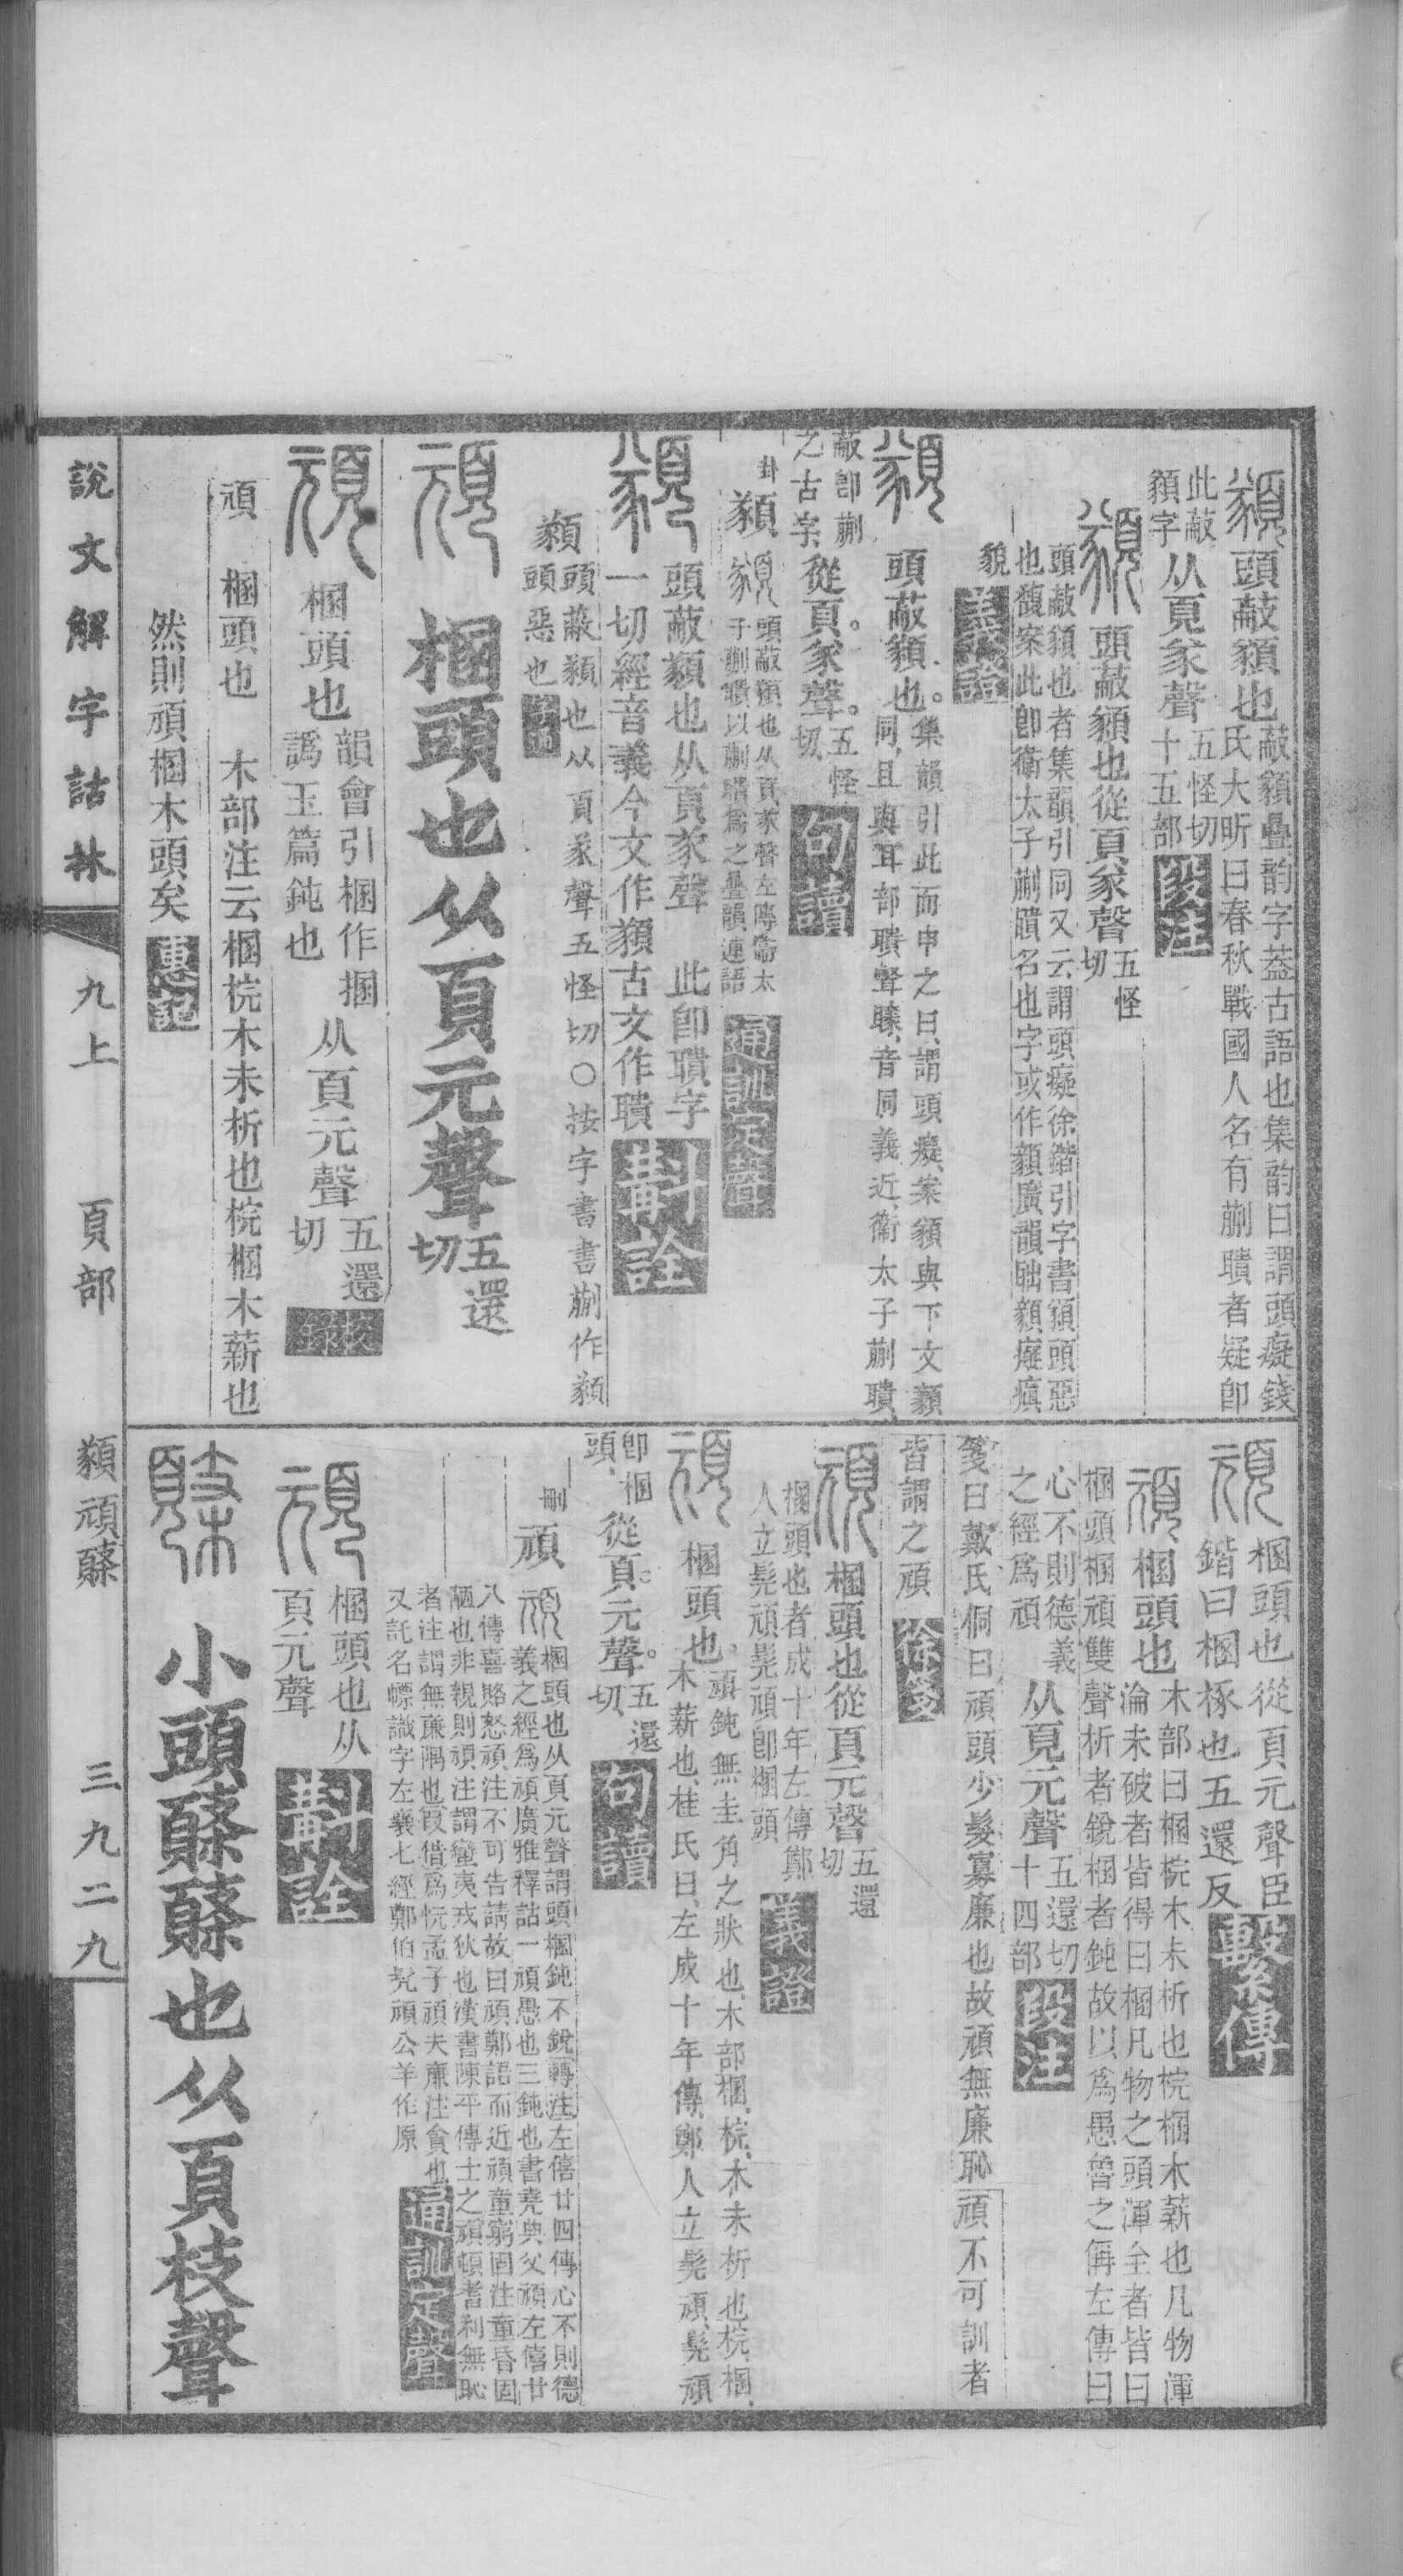 顡頭蔽顡也蔽顡疊韵字葢古語也集韵曰謂頭癡錢
氏大昕曰春秋戰國人名有蒯聵者疑卽
此蔽
顡字从頁㒸聲五怪切
十五部段注
顡頭蔽顡也從頁㒸聲五怪
切
頭蔽顡也者集韻引同又云謂頭癡徐鍇引字書顡頭惡
也馥案此卽衞太子蒯聵名也字或作顡廣韻聉顡癡瘨
貌義證
顡頭蔽顡也。集韻引此而申之曰、謂頭癡、案顡與下文
同、且與耳部聵聲𦗖、音同義近、衞太子蒯聵、
蔽卽蒯
之古字、從頁。㒸聲。五怪
切、句讀
卦顡顡頭蔽顡也从頁㒸聲左傳衞太
子蒯聵以蒯聵爲之疊韻連語通訓定聲
顡頭蔽顡也从頁㒸聲　此卽聵字
一切經音義今文作顡古文作聵斠詮
顡頭蔽顡也从頁㒸聲五怪切○按字書書蒯作顡
頭惡也
頑梱頭也从頁元聲五還
切
頑梱頭也韻會引梱作捆
譌玉篇鈍也从頁元聲五還
切校錄
頑　梱頭也　木部注云梱梡木未析也梡梱木薪也
然則頑梱木頭矣惠記
頑梱頭也從頁元聲臣
鍇曰梱㭬也五還反繫傳
頑梱頭也木部曰梱梡木未析也梡梱木薪也凡物渾
淪未破者皆得曰梱凡物之頭渾全者皆曰
梱頭梱頑雙聲析者銳梱者鈍故以爲愚魯之偁左傳曰
心不則德義
之經爲頑从頁元聲五還切
十四部段注
箋曰戴氏侗曰頑頭少髮寡廉也故頑無廉恥頑不可訓者
皆謂之頑徐箋
頑梱頭也從頁元聲五還
切
梱頭也者成十年左傳鄭
人立髡頑髡頑卽梱頭義證
頑梱頭也。頑鈍無圭角之狀也、木部梱、梡、木未析也、梡、梱、
木薪也、桂氏曰、左成十年傳、鄭人立髡頑、髡頑
卽梱
頭、從頁。元聲。五還
切、句讀
刪頑頑梱頭也从頁元聲謂頭梱鈍不銳轉注左僖廿四傳心不則德
義之經爲頑廣雅釋詁一頑愚也三鈍也書堯典父頑左僖廿
八傳喜賂怒頑注不可告請故曰頑鄭語而近頑童窮固注童昏固
陋也非親則頑注謂蠻夷戎狄也漢書陳平傳士之頑頓耆利無恥
者注謂無廉隅也叚借爲忨孟子頑夫廉注貪也
又託名幖識字左襄七經鄭伯髡頑公羊作原通訓定聲
頑梱頭也从
頁元聲斠詮
䫌小頭䫌䫌也从頁枝聲
說文解字詁林　九上　頁部　顡頑䫌　三九二九